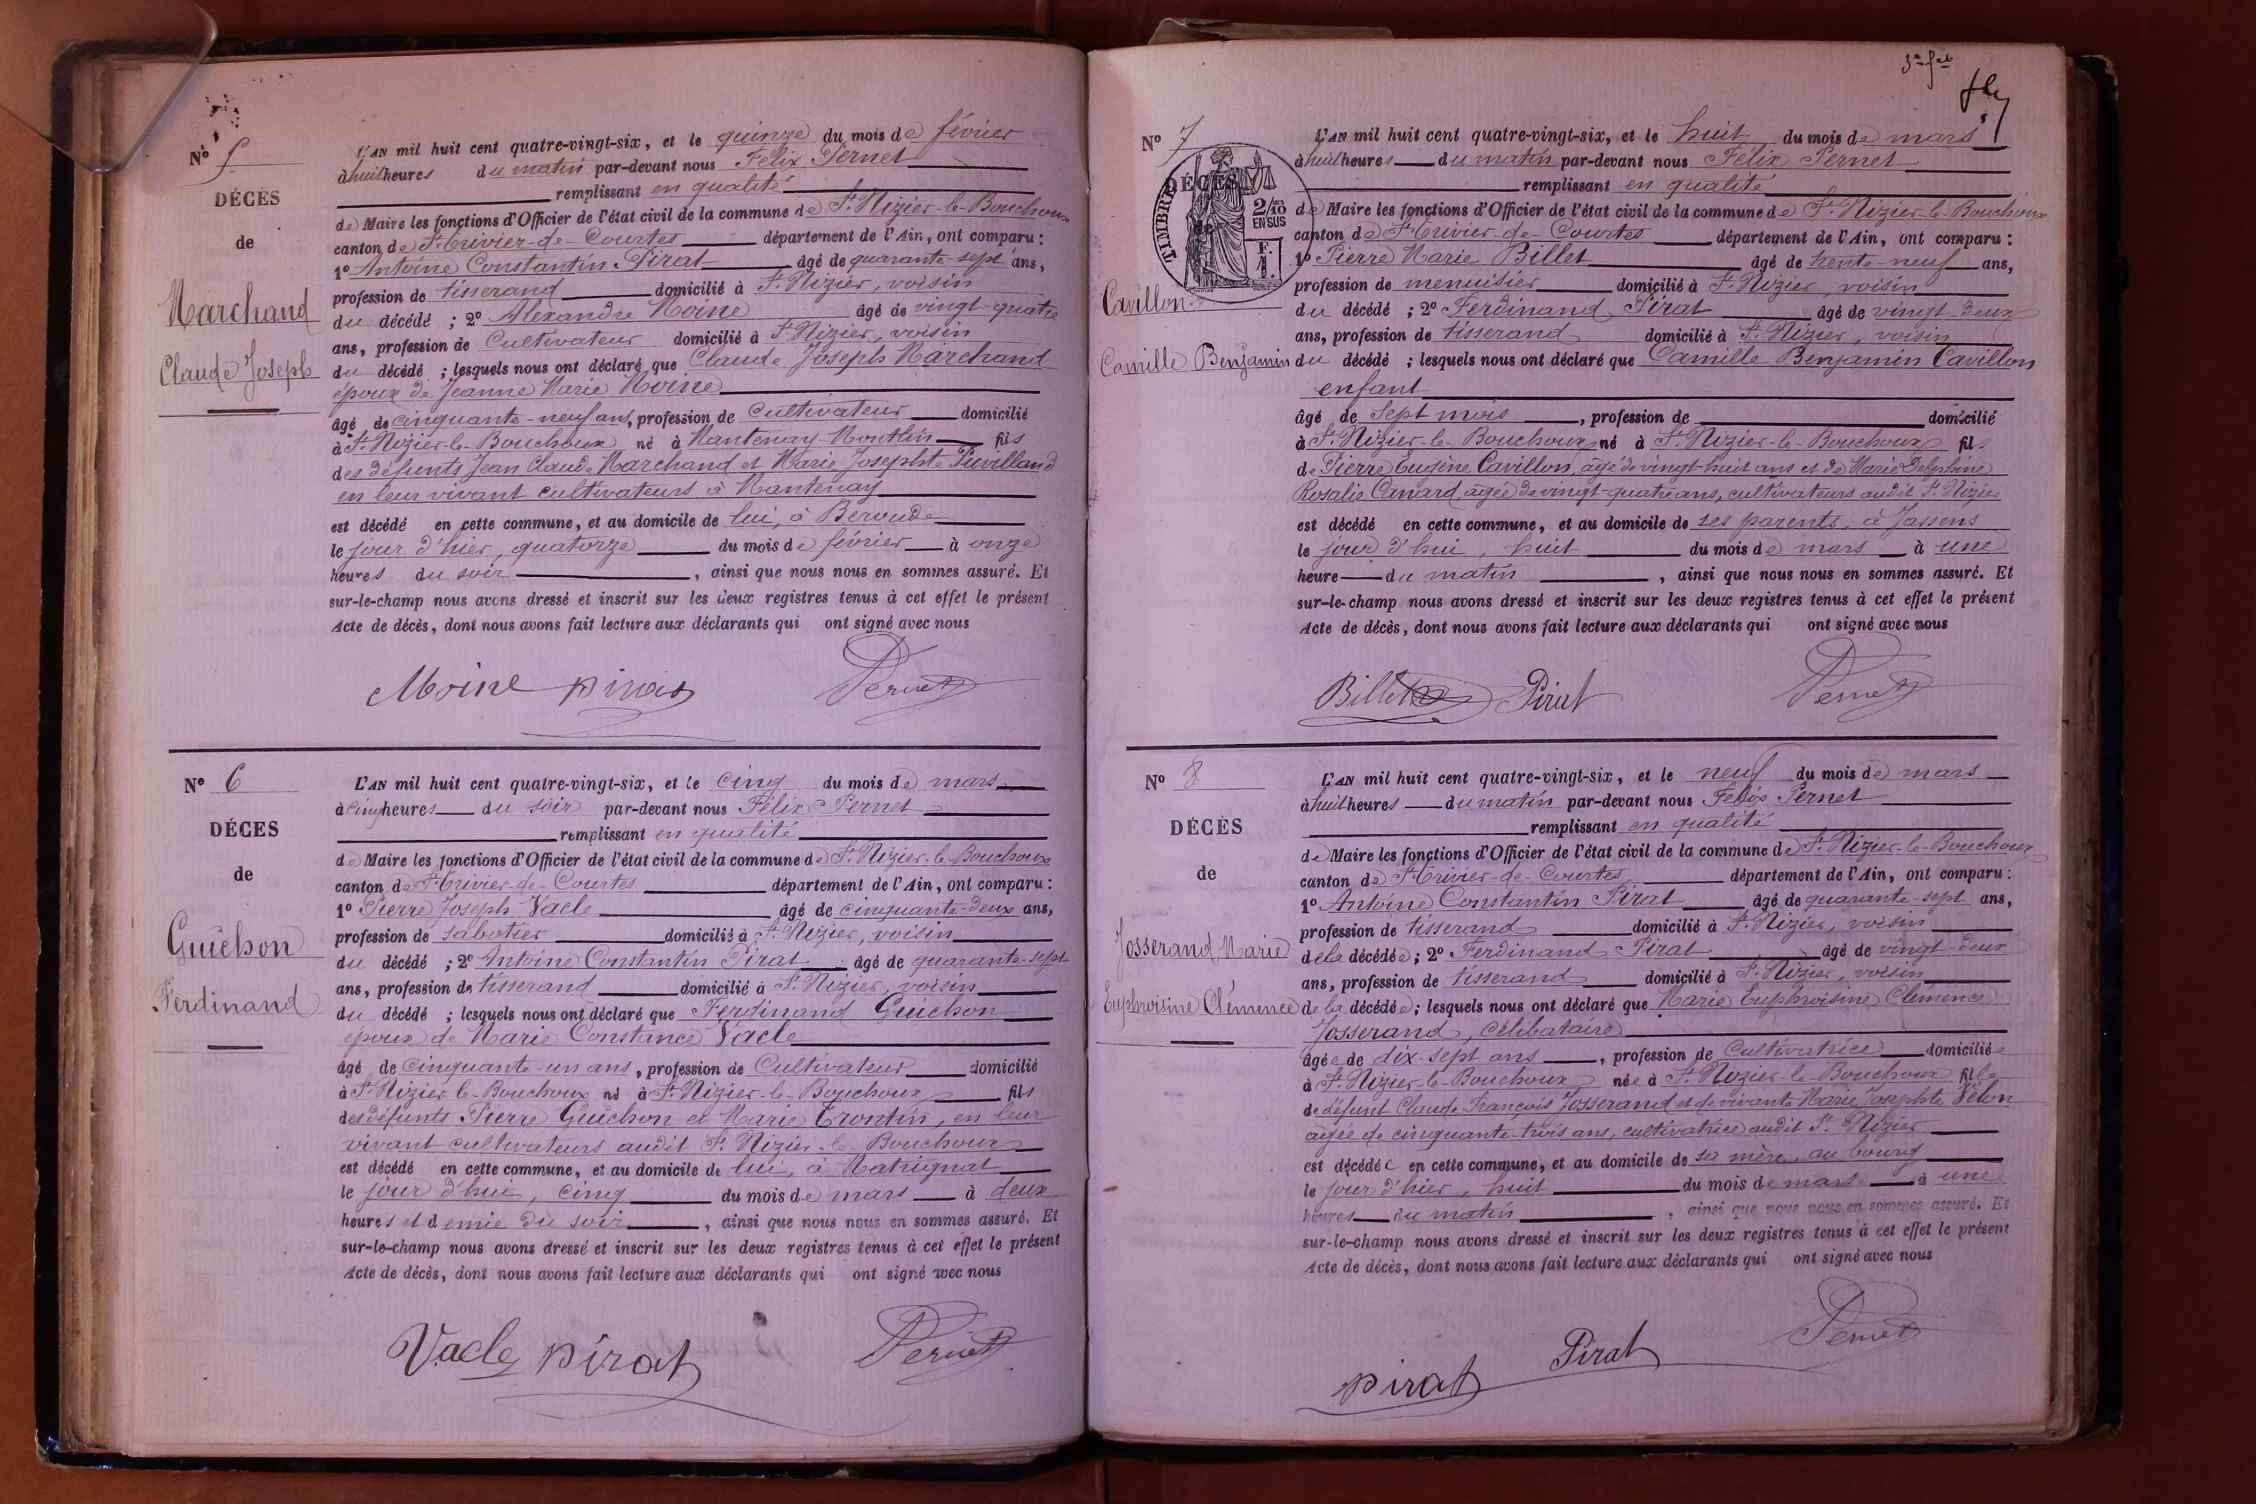 Nº 5
DÉCÈS
de
Marchand
Claude Joseph
L'AN mil huit cent quatre-vingt-six, et le quinze du mois de février
à huit heures du matin par-devant nous Félix Pernet
remplissant en qualité
de Maire les fonctions d'Officier de l'état civil de la commune de St Nizier-le-Bouchoux
canton de St Trivier-de-Courtes département de l'Ain, ont comparu :
1º Antoine Constantin Pirat âgé de quarante-sept ans,
profession de tisserand domicilié à St Nizier, voisin
du décédé ; 2º Alexandre Moine âgé de vingt-quatre
ans, profession de Cultivateur domicilié à St Nizier, voisin
du décédé ; lesquels nous ont déclaré que Claude Joseph Marchand
époux de Jeanne Marie Moine
âgé de cinquante-neuf ans, profession de Cultivateur domicilié
à St Nizier-le-Bouchoux né à Mantenay-Montlin fils
des défunts Jean Claude Marchand et Marie Josephte Puvilland
en leur vivant cultivateurs à Mantenay
est décédé en cette commune, et au domicile de lui, à Beroude
le jour d'hier, quatorze du mois de février à onze
heures du soir, ainsi que nous nous en sommes assuré. Et
sur-le-champ nous avons dressé et inscrit sur les deux registres tenus à cet effet le présent
Acte de décès, dont nous avons fait lecture aux déclarants qui ont signé avec nous
Moine pirat Pernet
Nº 6
DÉCES
de
Guichon
Ferdinand
L'AN mil huit cent quatre-vingt-six, et le cinq du mois de mars
à cinq heures du soir par-devant nous Félix Pernet
remplissant en qualité
de Maire les fonctions d'Officier de l'état civil de la commune de St Nizier-le-Bouchoux
canton de St Trivier-de-Courtes département de l'Ain, ont comparu :
1º Pierre Joseph Vacle âgé de cinquante-deux ans,
profession de sabotier domicilié à St Nizier, voisin
du décédé ; 2º Antoine Constantin Pirat âgé de quarante-sept
ans, profession de tisserand domicilié à St Nizier, voisin
du décédé ; lesquels nous ont déclaré que Ferdinand Guichon
époux de Marie Constance Vacle
âgé de cinquante-un ans, profession de Cultivateur domicilié
à St Nizier-le-Bouchoux né à St Nizier-le-Bouchoux fils
des défunts Pierre Guichon et Marie Trontin, en leur
vivant cultivateurs audit St Nizier-le-Bouchoux
est décédé en cette commune, et au domicile de lui, à Matrignat
le jour d'hui, cinq du mois de mars à deux
heures et demie du soir, ainsi que nous nous en sommes assuré. Et
sur-le-champ nous avons dressé et inscrit sur les deux registres tenus à cet effet le présent
Acte de décès, dont nous avons fait lecture aux déclarants qui ont signé avec nous
Vacle pirat Pernet
Nº 7
DÉCÈS
de
TIMBRE
2/10 EN SUS
Cavillon
Camille Benjamin
L'AN mil huit cent quatre-vingt-six, et le huit du mois de mars
à huit heures du matin par-devant nous Félix Pernet
remplissant en qualité
de Maire les fonctions d'Officier de l'état civil de la commune de St Nizier-le-Bouchoux
canton de St Trivier-de-Courtes département de l'Ain, ont comparu :
1º Pierre Marie Billet âgé de trente-neuf ans,
profession de menuisier domicilié à St Nizier, voisin
du décédé ; 2º Ferdinand Pirat âgé de vingt-deux
ans, profession de tisserand domicilié à St Nizier, voisin
du décédé ; lesquels nous ont déclaré que Camille Benjamin Cavillon
enfant
âgé de sept mois, profession de domicilié
à St Nizier-le-Bouchoux né à St Nizier-le-Bouchoux fils
de Pierre Eugène Cavillon, âgé de vingt-huit ans et de Marie Delphine
Rosalie Canard, âgée de vingt-quatre ans, cultivateurs audit St Nizier
est décédé en cette commune, et au domicile de ses parents, à Jassens
le jour d'hui, huit du mois de mars à une
heure du matin, ainsi que nous nous en sommes assuré. Et
sur-le-champ nous avons dressé et inscrit sur les deux registres tenus à cet effet le présent
Acte de décès, dont nous avons fait lecture aux déclarants qui ont signé avec nous
Billet Pirat Pernet
Nº 8
DÉCÈS
de
Josserand Marie
Euphroisine Clémence
L'AN mil huit cent quatre-vingt-six, et le neuf du mois de mars
à huit heures du matin par-devant nous Félix Pernet
remplissant en qualité
de Maire les fonctions d'Officier de l'état civil de la commune de St Nizier-le-Bouchoux
canton de St Trivier-de-Courtes département de l'Ain, ont comparu :
1º Antoine Constantin Pirat âgé de quarante-sept ans,
profession de tisserand domicilié à St Nizier, voisin
de la décédée ; 2º Ferdinand Pirat âgé de vingt-deux
ans, profession de tisserand domicilié à St Nizier, voisin
de la décédée ; lesquels nous ont déclaré que Marie Euphroisine Clémence
Josserand, célibataire
âgée de dix-sept ans, profession de Cultivatrice domiciliée
à St Nizier-le-Bouchoux née à St Nizier-le-Bouchoux fille
de défunt Claude François Josserand et de vivante Marie Josephte Velon
âgée de cinquante-trois ans, cultivatrice audit St Nizier
est décédée en cette commune, et au domicile de sa mère, au bourg
le jour d'hier, huit du mois de mars à une
heures du matin, ainsi que nous nous en sommes assuré. Et
sur-le-champ nous avons dressé et inscrit sur les deux registres tenus à cet effet le présent
Acte de décès, dont nous avons fait lecture aux déclarants qui ont signé avec nous
pirat Pirat Pernet